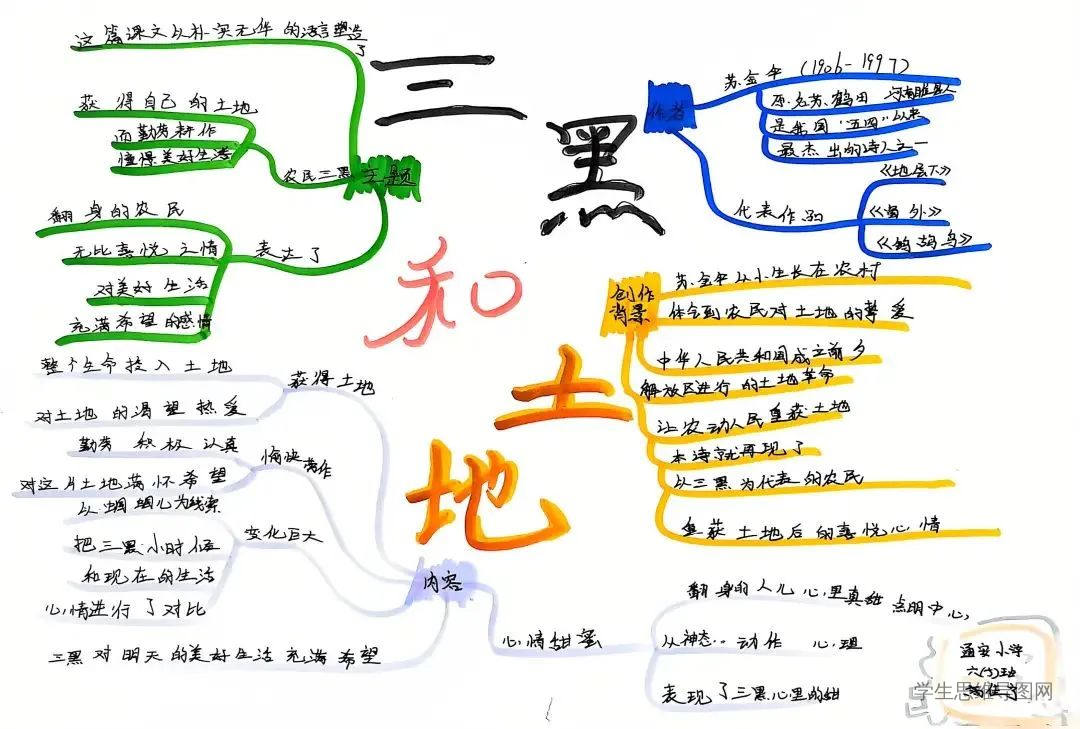 三黑和土地
作者
苏金伞 (1906-1997)
原名苏鹤田 河南睢县人
是我国“五四”以来
最杰出的诗人之一
代表作品
《地层下》
《窗外》
《鹁鸪鸟》
创作
背景
苏金伞从小生长在农村
体会到农民对土地的挚爱
中华人民共和国成立前夕
解放区进行的土地革命
让农动人民重获土地
本诗就再现了
以三黑为代表的农民
重获土地后的喜悦心情
主题
这篇课文以朴实无华的语言塑造
了
农民三黑
获得自己的土地
而勤劳耕作
憧得美好生活
表达了
翻身的农民
无比喜悦之情
对美好生活
充满希望的感情
内容
获得土地
整个生命投入土地
对土地的渴望热爱
愉快劳作
勤劳积极认真
对这片土地满怀希望
变化巨大
以蝈蝈儿为线索
把三黑小时候
和现在的生活
心情进行了对比
三黑对明天的美好生活充满希望
心情甜蜜
翻身的人儿心里真甜 点明中心
从神态..动作 心理
表现了三黑心里的甜
小学
班
学生思维导图网